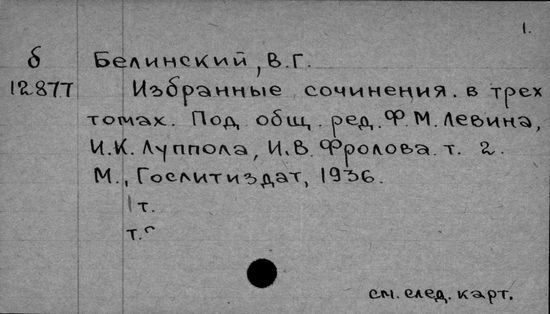 1.
б Белинский, В.Г.
12877 Избранные сочинения. в трех
томах. Под общ. ред. Ф.М. Левина,
И.К. Луппола, И.В. Фролова. т. 2.
М., Гослитиздат, 1936.
т.
т.
см. след. карт.